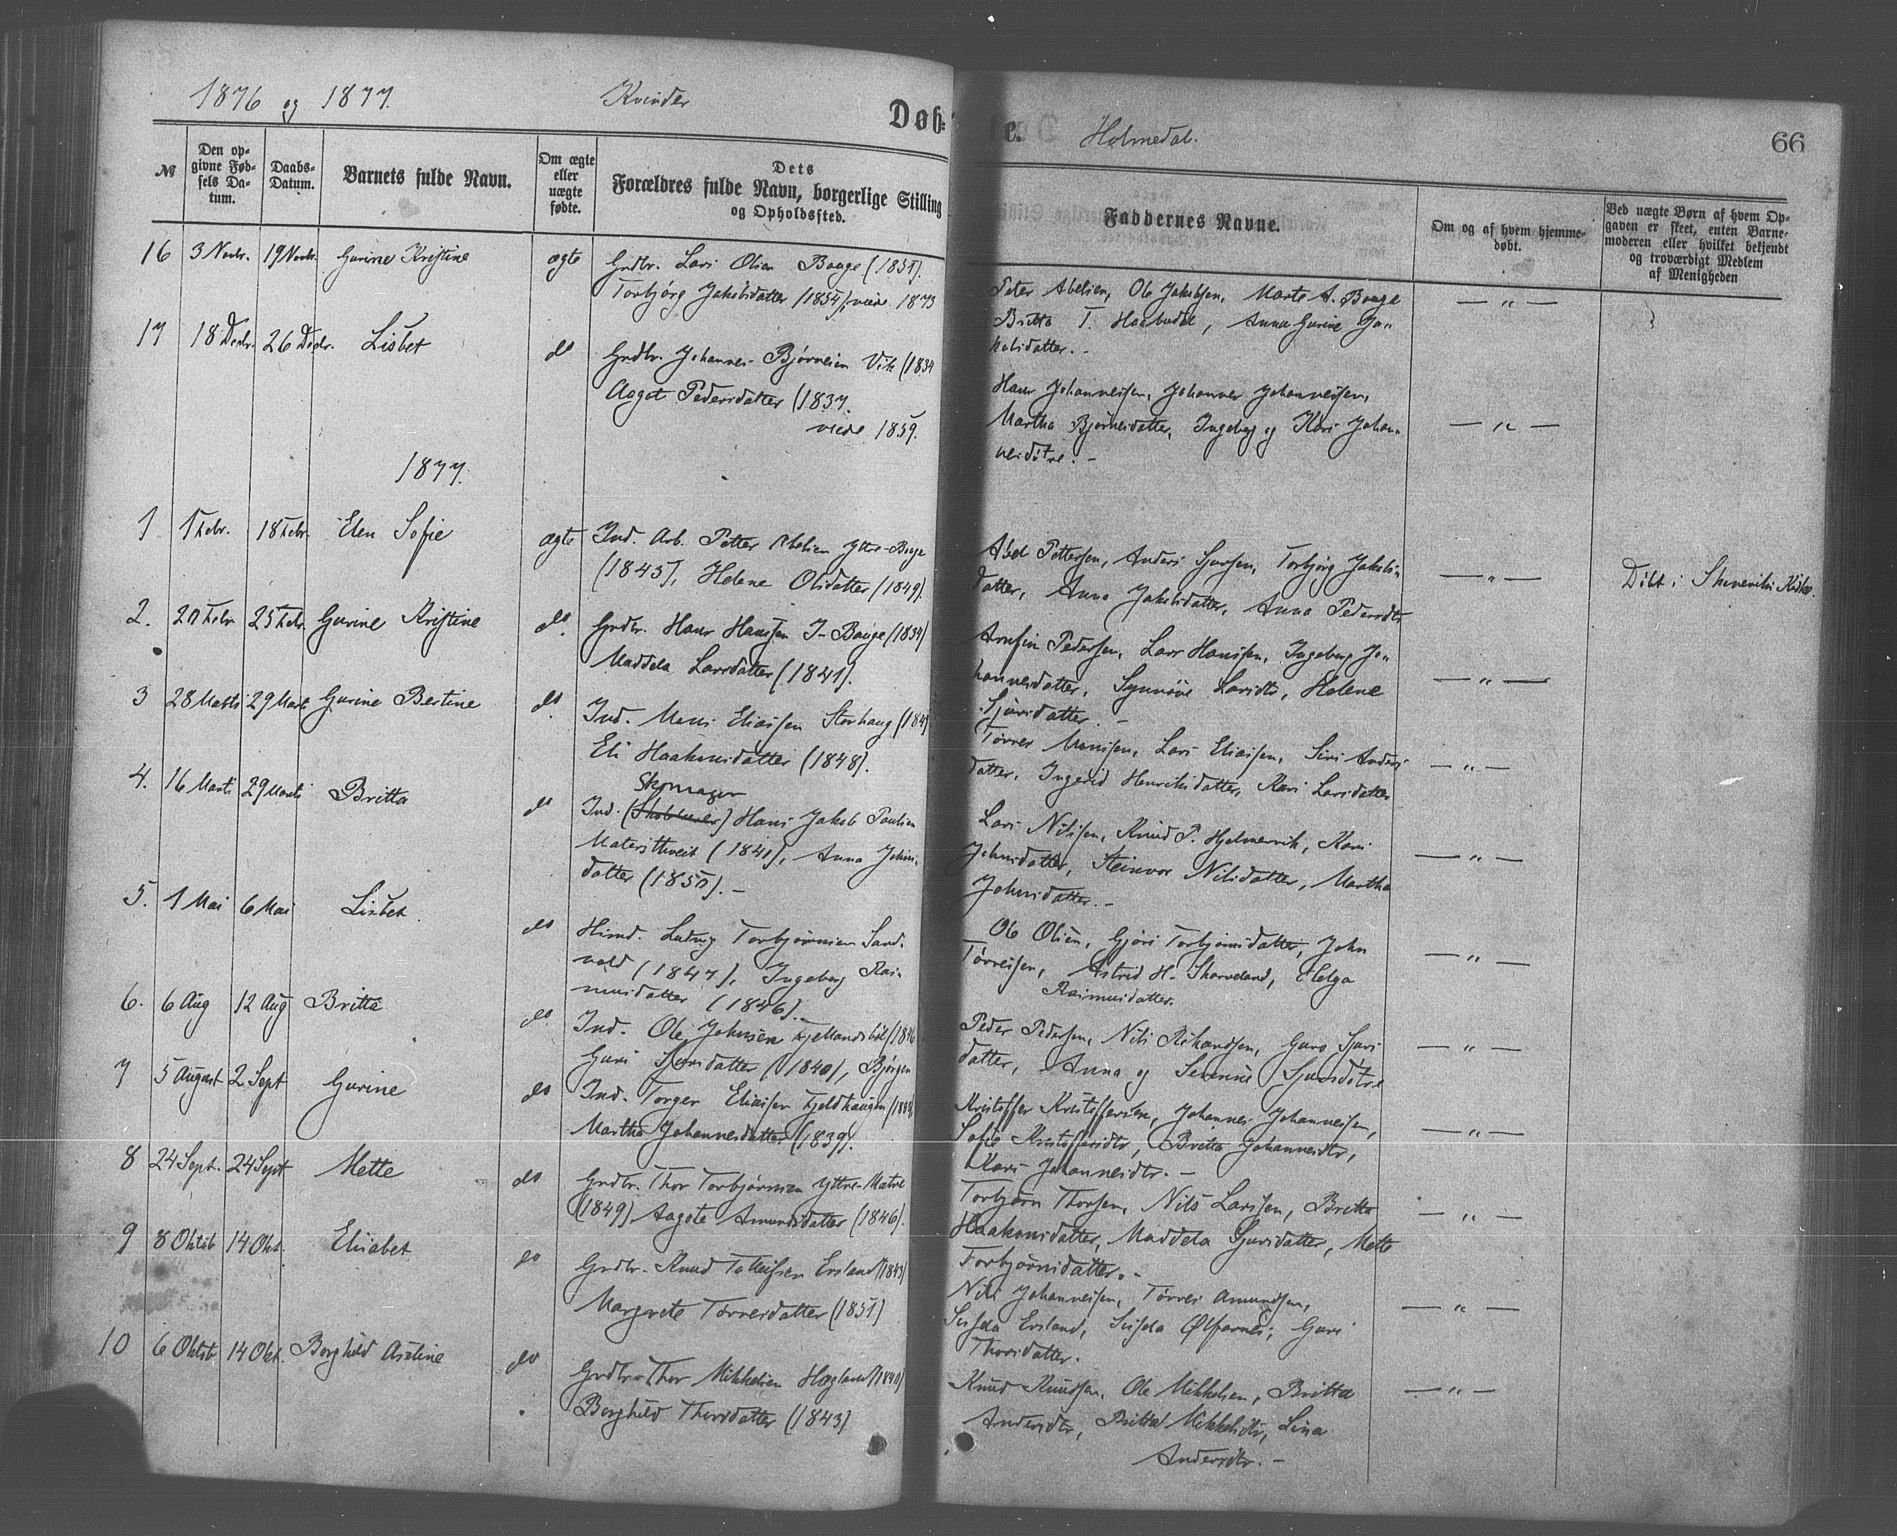 1876 og 1877. Kvinder
Døb-
te. Holmedal.
66
№
Den opgivne Fødsels Datum.
Daabs-Datum.
Barnets fulde Navn.
Om ægte eller uægte fødte.
Dets
Forældres fulde Navn, borgerlige Stilling
og Opholdssted.
Faddernes Navne.
Om og af hvem hjemmedøbt.
Ved uægte Børn af hvem Op-
gaven er skeet, enten Barne-
moderen eller hvilket bekjendt
og troværdigt Medlem
af Menigheden
16 3 Novbr. 19 Novbr. Gurine Kristine ægte Grdbr. Lars Olsen Bauge (1851).
Torbjørg Jakobsdatter (1854), viede 1873
Peter Abelsen, Ole Jakobsen, Marte A. Bauge
Britta T. Haabadal, Anna Gurine Ja-
kobsdatter. -
— „ —
17 18 Decbr. 26 Decbr. Lisbet do Grdbr. Johannes Bjørnsen Vik (1834
Aagot Pedersdatter (1837.
viede 1859.
Hans Johannessen, Johannes Johannessen,
Martha Bjørnsdatter, Ingeborg og Kari Johan-
nesdøtre. -
— „ —
1877.
1 1 Febr. 18 Febr. Elen Sofie ægte Ind. Arb. Petter Abelsen Yttre-Bauge
(1843), Helene Olsdatter (1849).
Abel Pettersen, Anders Sjursen, Torbjørg Jakobs-
datter, Anna Jakobsdatter, Anna Pedersdtr
— „ —
Døbt i Skoneviks Kirke.
2. 20 Febr 25 Febr. Gurine Kristine do. Grdbr. Hans Hanssen I-Bauge (1834)
Maddela Larsdatter (1841).
Arnfin Pedersen, Lars Hanssen, Ingeborg Jo-
hannesdatter, Synnøve Larsdtr, Helene
Sjursdatter. -
— „ —
3 28 Marts 29 Marts Gurine Bertine do. Ind. Mons Eliassen Storhaug
Eli Haakonsdatter (1848).
Tørres Monsen, Lars Eliassen, Siri Anders-
datter, Ingerid Henriksdatter, Kari Larsdatter
— „ —
4. 16 Marts 29 Marts Britta do Ind. Skomager Hans Jakob Paulsen
Matersthveit (1841), Anna Johns-
datter (1850). -
Lars Nilssen, Knud P. Hjelmervik, Kari
Johnsdatter, Steinvor Nilsdatter, Martha
Johnsdatter. -
— „ —
5. 1 Mai 6 Mai Lisbet. do Husmd. Ludvig Torbjørnsen Sand-
vold (1847), Ingeborg Ras-
musdatter (1846). -
Ole Olsen, Gjøri Torbjørnsdatter, John
Tørresen, Astrid H. Skarveland, Helga
Rasmusdatter.
— „ —
6. 6 Aug 12 Aug Britta do. Ind. Ole Johnsen Fjellandsbøl
Guri Sjursdatter (1840), Bjørgen
Peder Pedersen, Nils Rikardsen, Guro Sjurs-
datter, Anna og Severine Sjursdøtre
— „ —
7 5 August 2 Sept Gurine do Ind. Torger Eliassen Fjeldhaugen
Martha Johannesdatter (1839).
Kristoffer Kristoffersen, Johannes Johannessen,
Sofie Kristoffersdtr, Britta Johannesdtr,
Kari Johannesdtr. -
— „ —
8 24 Sept. 24 Sept Mette do Grdbr. Thor Torbjørnsen Yttre-Matre
(1849) Aagote Amundsdatter (1846).
Torbjørn Thorsen, Nils Larssen, Britta
Haakonsdatter, Maddela Sjursdatter, Mette
Torbjørnsdatter. -
— „ —
9 8 Oktob 14 Okt. Elisabet do Grdbr. Knud Tolleifsen Ersland (1843)
Margrete Tørresdatter (1851)
Nils Johannessen, Tørres Amundsen,
Ersland, Ølfarnes, Guri
Thorsdatter.
— „ —
10 6 Oktob 14 Okt. Borghild Aseline do Grdbr. Thor Mikkelsen Høgland (1840)
Borghild Thorsdatter (1843)
Knud Knudsen, Ole Mikkelsen, Britta
Andersdtr, Britta Mikkelsdtr, Sina
Andersdtr. -
— „ —